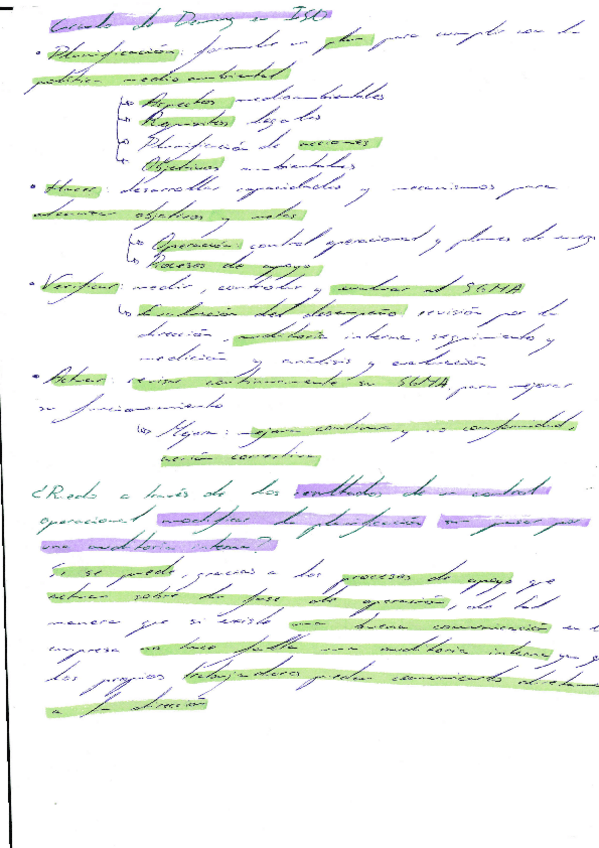 Círculo de Deming en ISO
• Planificación: formular un plan para cumplir con la
política medioambiental
↳ Aspectos medioambientales
↳ Requisitos legales
↳ Planificación de acciones
↳ Objetivos ambientales
• Hacer: desarrollar capacidades y mecanismos para
alcanzar objetivos y metas
↳ Operación control operacional y planes de
↳ Procesos de apoyo
• Verificar: medir, controlar y evaluar el SGMA
↳ Evaluación del desempeño: revisión por la
dirección, auditoría interna, seguimiento y
medición y análisis y evaluación
• Actuar: revisar continuamente su SGMA, para mejorar
su funcionamiento
↳ Mejora: mejora continua y no conformidad,
acción correctiva
¿Puedo a través de los resultados de un control
operacional modificar la planificación sin pasar por
una auditoría interna?
Si se puede, gracias a los procesos de apoyo que
actúan sobre la fase de operación, de tal
manera que si existe una buena comunicación en
empresa no hace falta una auditoría interna
los propios trabajadores pueden
a la dirección